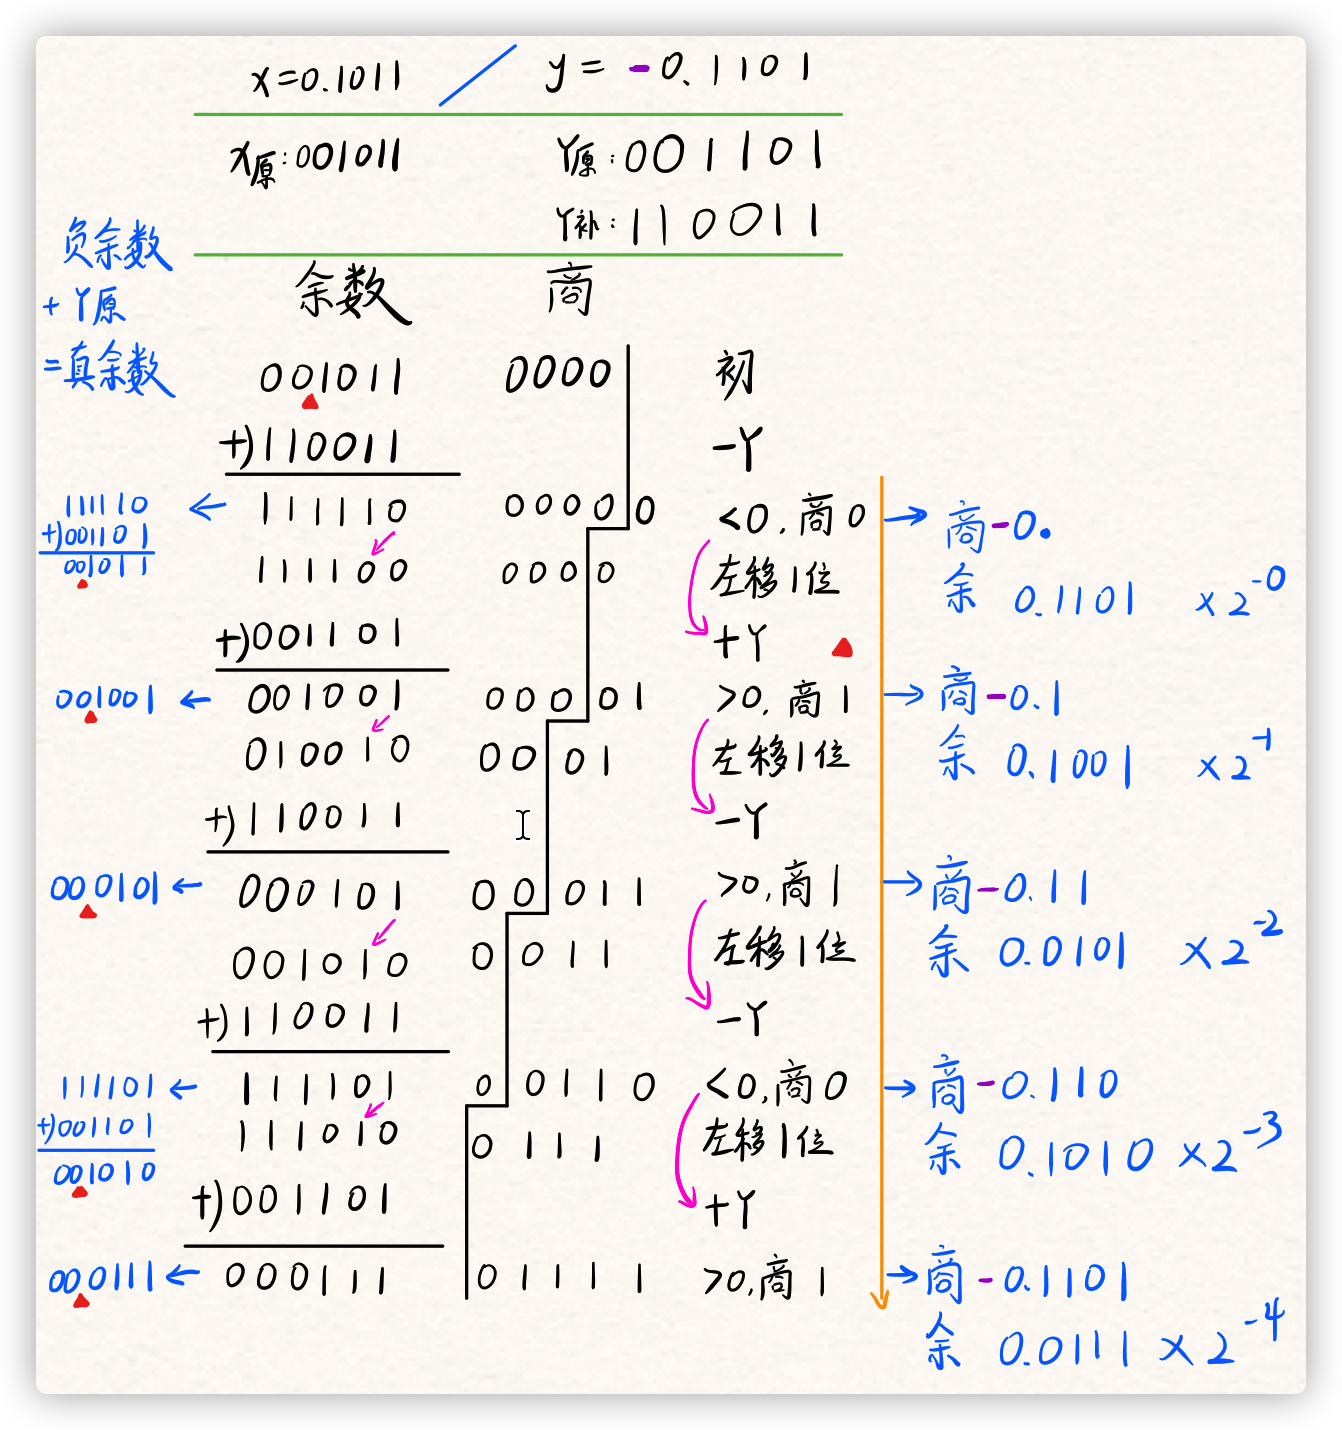 x=0.1011 / y=-0.1101
x原:001011 Y原:001101
Y补:110011
负余数
+Y原
=真余数
余数 商
001011 0000 初
+)110011 -Y
111110 ← 111110 00000 <0,商0 → 商-0.
+)001101
001011
111100 0000 左移1位 余 0.1101 ×2^-0
+)001101 +Y
001001 ← 001001 00001 >0,商1 → 商-0.1
010010 0001 左移1位 余 0.1001 ×2^-1
+)110011 -Y
000101 ← 000101 00011 >0,商1 → 商-0.11
001010 0011 左移1位 余 0.0101 ×2^-2
+)110011 -Y
111101 ← 111101 00110 <0,商0 → 商-0.110
+)001101
001010
111010 0111 左移1位 余 0.1010 ×2^-3
+)001101 +Y
000111 ← 000111 01111 >0,商1 → 商-0.1101
余 0.0111 ×2^-4